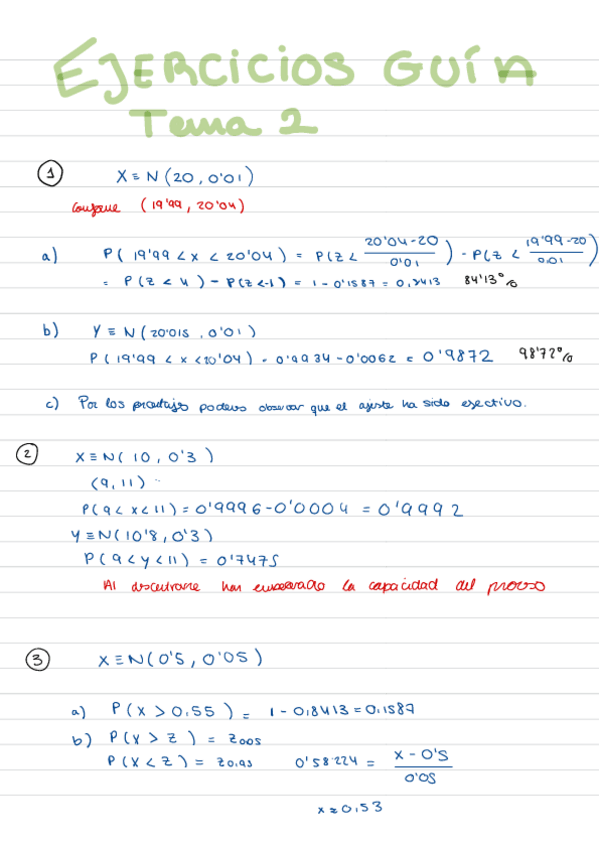 EJERCICIOS GUÍA
Tema 2
1 X ≡ N(20, 0'01)
Conforme (19'99, 20'04)
a) P(19'99 < x < 20'04) = P(Z < (20'04-20)/0'01) - P(Z < (19'99-20)/0.01)
= P(Z < 4) - P(Z<-1) = 1 - 0'1587 = 0,8413 84'13%
b) Y ≡ N(20'015, 0'01)
P(19'99 < x < 20'04) = 0'9934 - 0'0062 = 0'9872 98'72%
c) Por los podemos observar que el ajuste ha sido efectivo.
2 X ≡ N(10, 0'3)
(9, 11)
P(9 < x < 11) = 0'9996 - 0'0004 = 0'9992
Y ≡ N(10'8, 0'3)
P(9 < y < 11) = 0'7475
Al han la capacidad del proceso
3 X ≡ N(0'5, 0'05)
a) P(X > 0,55) = 1 - 0,8413 = 0,1587
b) P(X > Z) = Z0.05
P(X < Z) = Z0,95 0'58224 = (X - 0'5)/0'05
x = 0,53